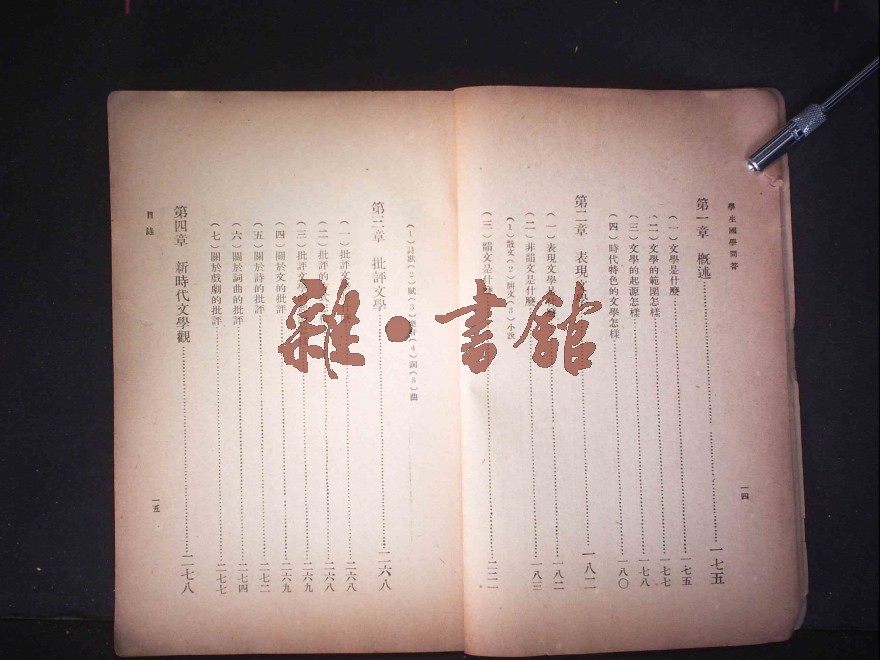 學生國學問答
第一章 概述 一七五
(一)文學是什麼 一七五
(二)文學的範圍怎樣 一七七
(三)文學的起源怎樣 一七八
(四)時代特色的文學怎樣 一八〇
第二章 表現文學 一八二
(一)表現文學是什麼 一八二
(二)非韻文是什麼 一八三
(1)散文(2)駢文(3)小說
(三)韻文是什麼
一四
(1)詩歌(2)賦(3) (4)詞(5)曲
第三章 批評文學 二六八
(一)批評文 二六八
(二)批評的 二六八
(三)批評文學 二六九
(四)關於文的批評 二六九
(五)關於詩的批評 二七二
(六)關於詞曲的批評 二七四
(七)關於戲劇的批評 二七七
第四章 新時代文學觀 二七八
目錄
一五
雜·書館